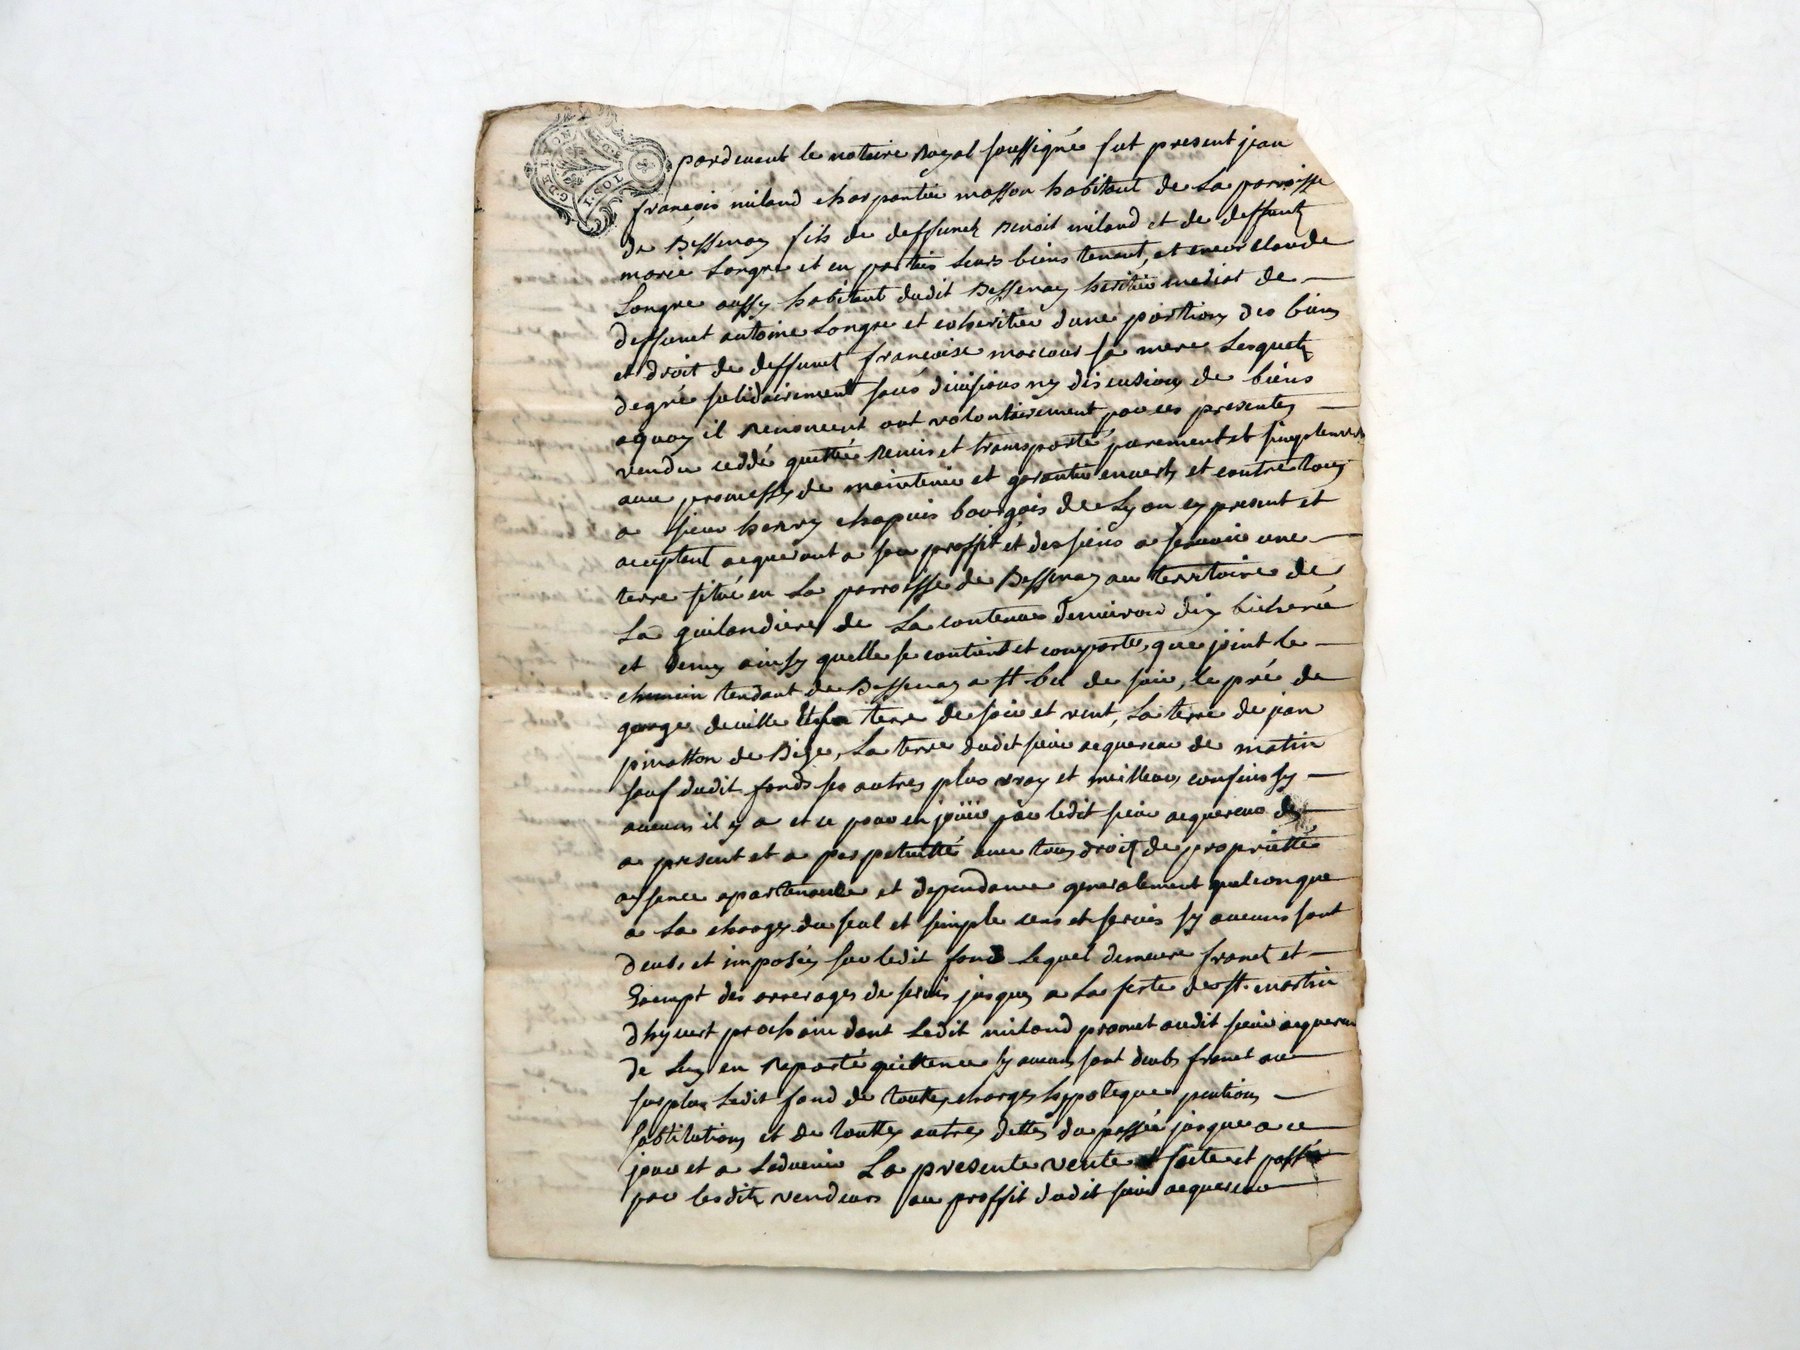 pardevant le notaire Royal soussigné fut present jean
francois miland charpantier masson habitant de La parroisse
de Bessenay fils de deffunct Benoit miland et de deffunte
marie Longre et en parties leurs biens tenant, et sieur claude
Longre aussy habitant dudit Bessenay heritier mediat de
deffunct antoine Longre et coheritier dune portion des biens
et droit de deffunct francoise sa mere Lesquels
degré solidairement sans divisions ny discusions de biens
aquoy il renoncent ont volontairement par ces presentes
vendu ceddé quitté Remis et transporté purement et simplement
avec promesse de maintenir et garantir envers et contre tous
a sieur henry chapuis bourgois de Lyon cy present et
acceptant acquerant a son proffit et des siens a scavoir une
terre située en La parroisse de Bessenay au territoire de
La guilandiere de La contenue denviron dix bicherée
et demy ainsy quelle se contient et comporte, que joint le
chemin tendant de Bessenay a st bel de soir, le pré de
george deville et sa terre de soir et vent, La terre de jean
pinatton de Bize, La terre dudit sieur acquereur de matin
sauf dudit fonds ses autres plus vray et meilleurs confins sy
aucuns il y a et ce pour en jouir par ledit sieur acquereur des
a present et a perpetuitté avec tous droits de proprietté
aysance apartenance et dependance generalement quelconque
a La charge du seul et simple cens et servis sy aucuns sont
deubs et imposés sur ledit fond Lequel demeure franct et
Exempt des arrerages de servis jusques a La feste de st. martin
dhyvert prochain dont Ledit miland promet audit sieur acquereur
de Luy en Reporté quittence sy aucuns sont deubs franct au
surplus Ledit fond de touttes charges hypoteque pentions
substitutions et de touttes autres dettes du passée jusque a ce
jour et a Ladvenir La presente vente faite et passée
par lesdits vendeurs au proffit dudit sieur acquereur